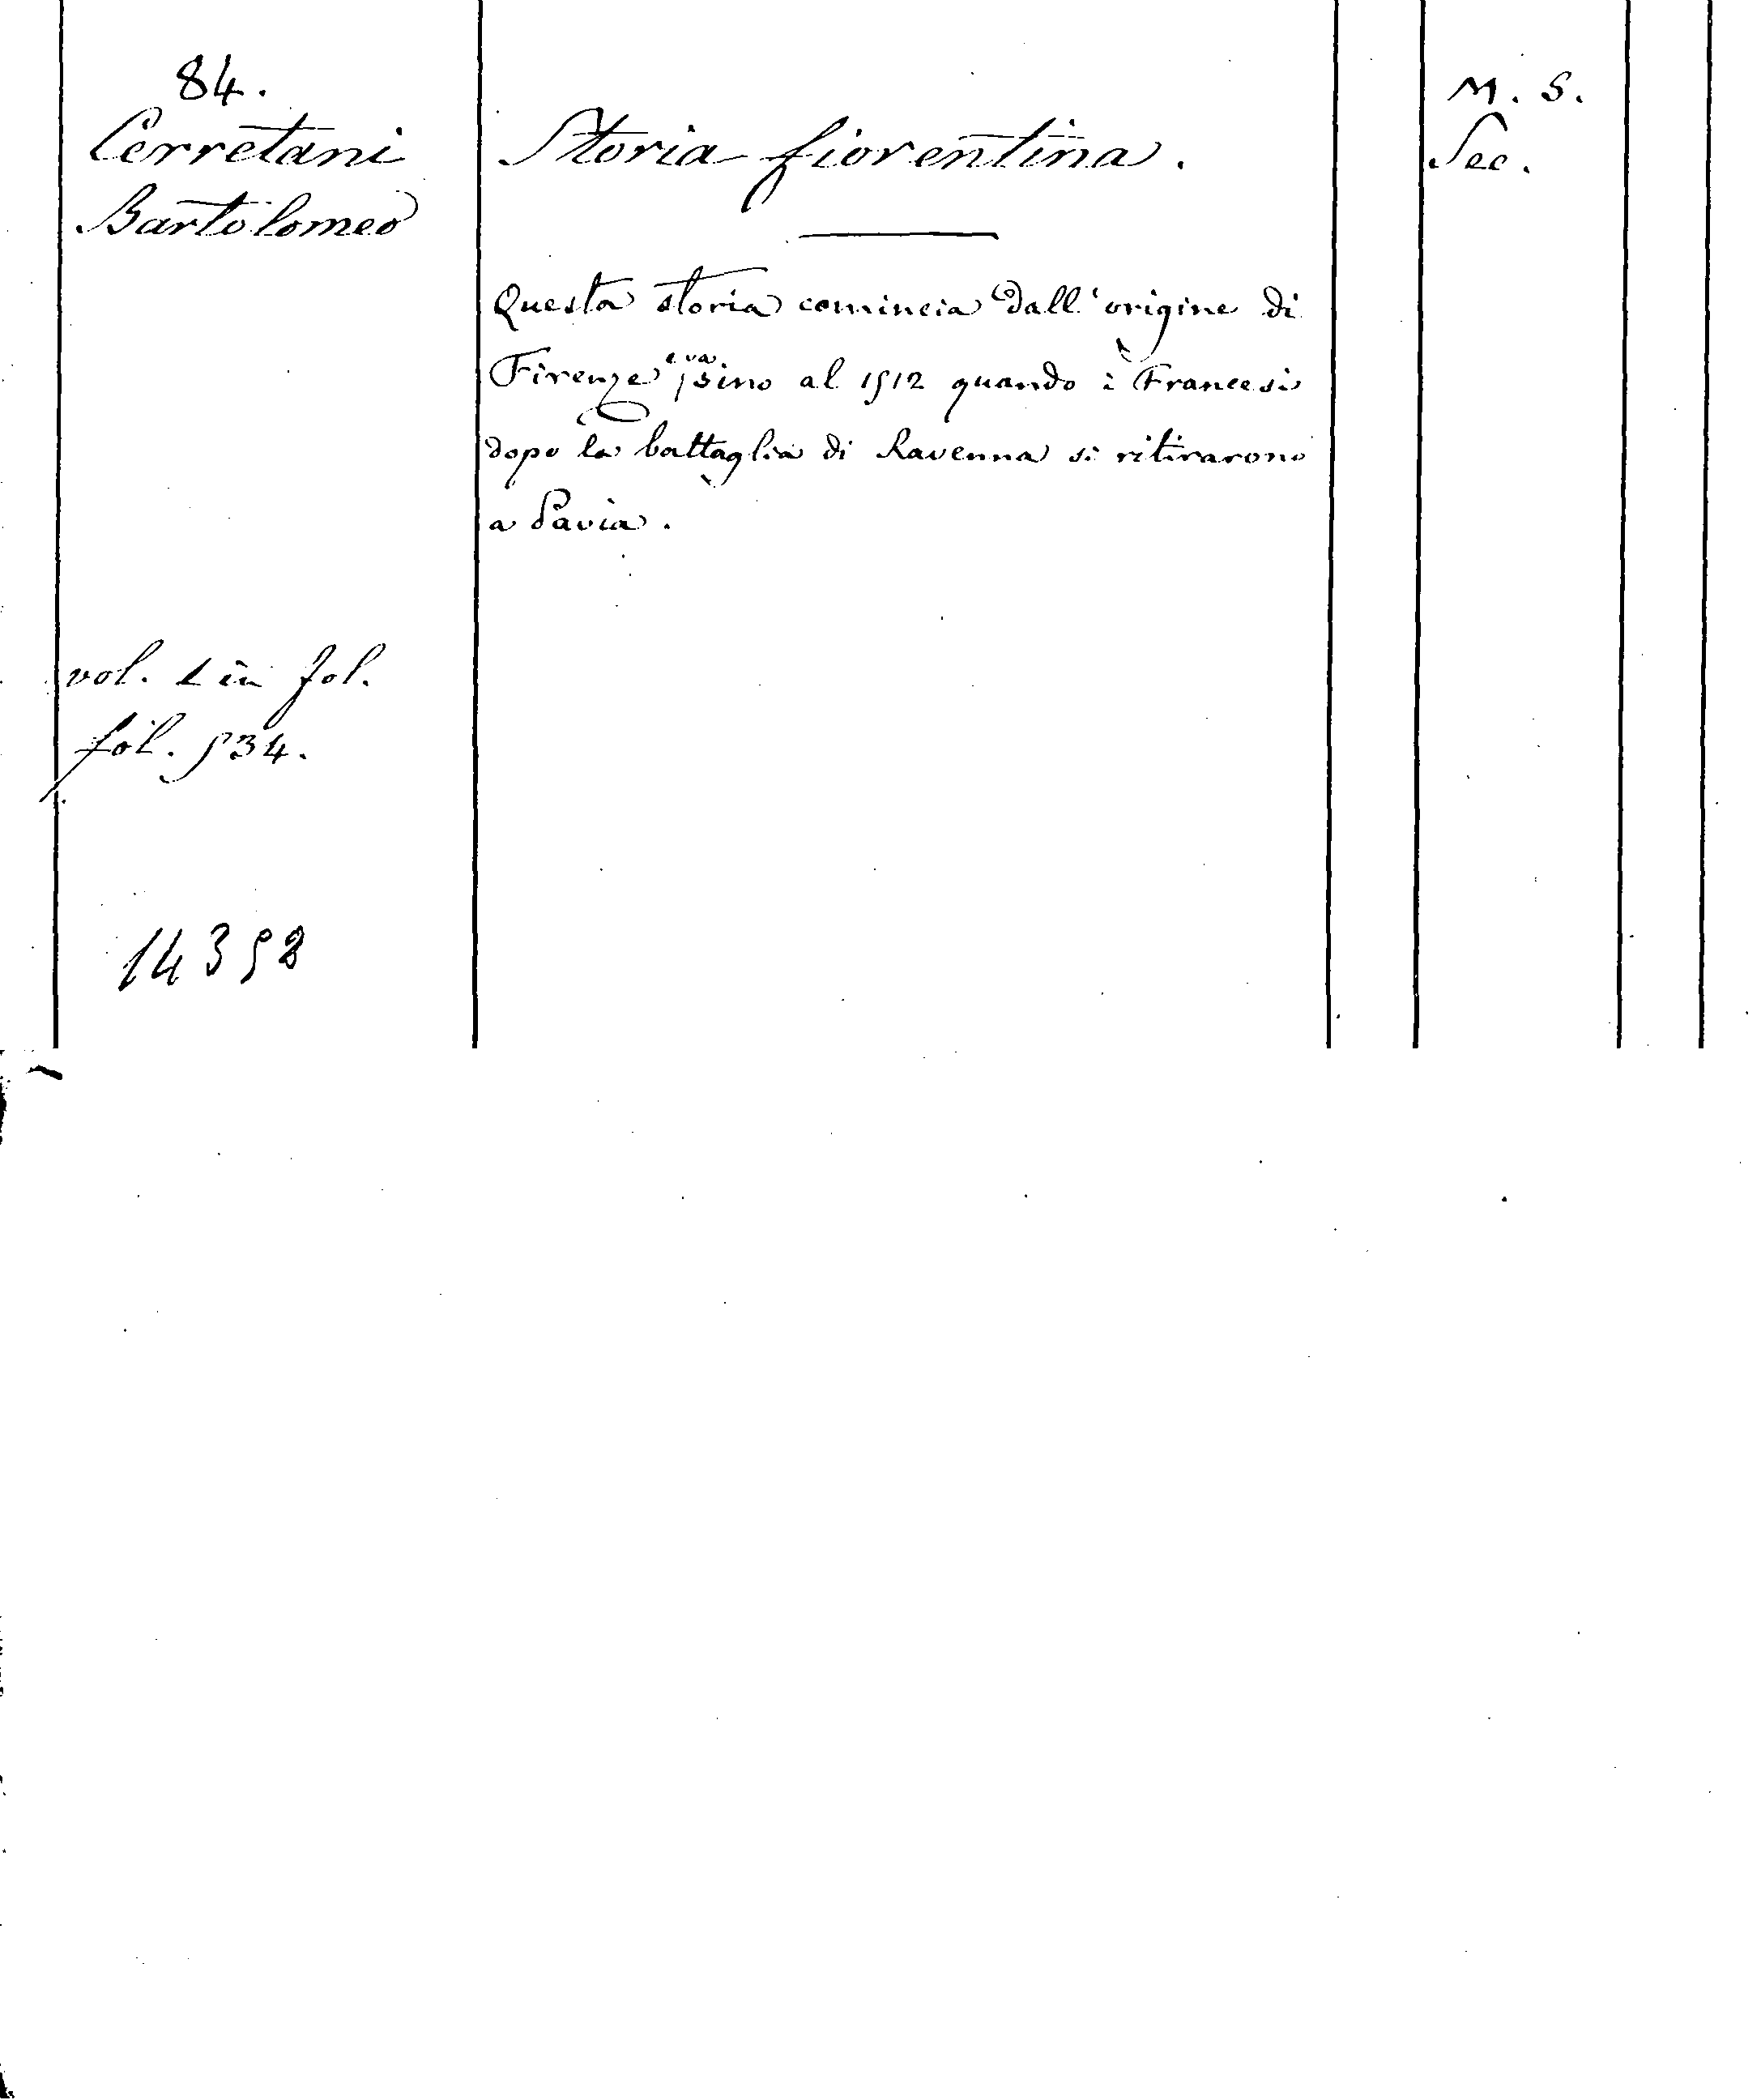 84.
Cerretani
Bartolomeo
Storia fiorentina.
M. S.
Sec.
Questa storia comincia dall'origine di
Firenze e va sino al 1512 quando i Francesi
dopo la battaglia di Ravenna si ritirarono
a Pavia.
vol. 1 in fol.
fol. 534.
14358